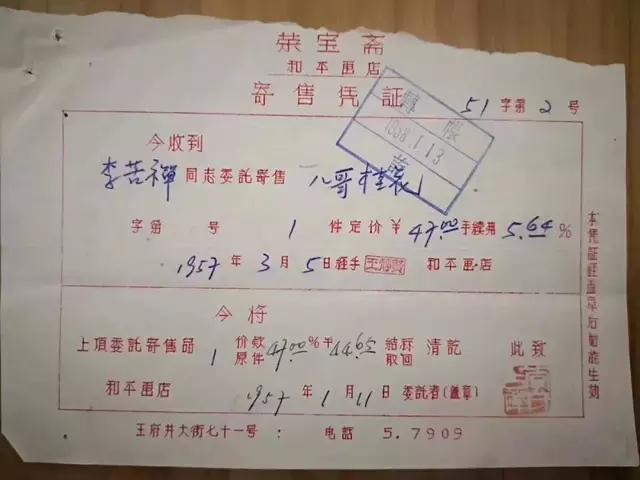 荣宝斋
和平画店
寄售凭証
51字第2号
轉賬
1958.1.13
今收到
李苦禪同志委託寄售八哥桂花
字第 号 1件定价￥47.00手续费5.64%
1957年3月5日经手 和平画店
今将
上項委託寄售品1价款原件47.00%￥44.65結清取回清訖 此致
和平画店 1957年1月11日委託者(盖章)
本凭証註盖章后始能生効
王府井大街七十一号: 电話 5.7909